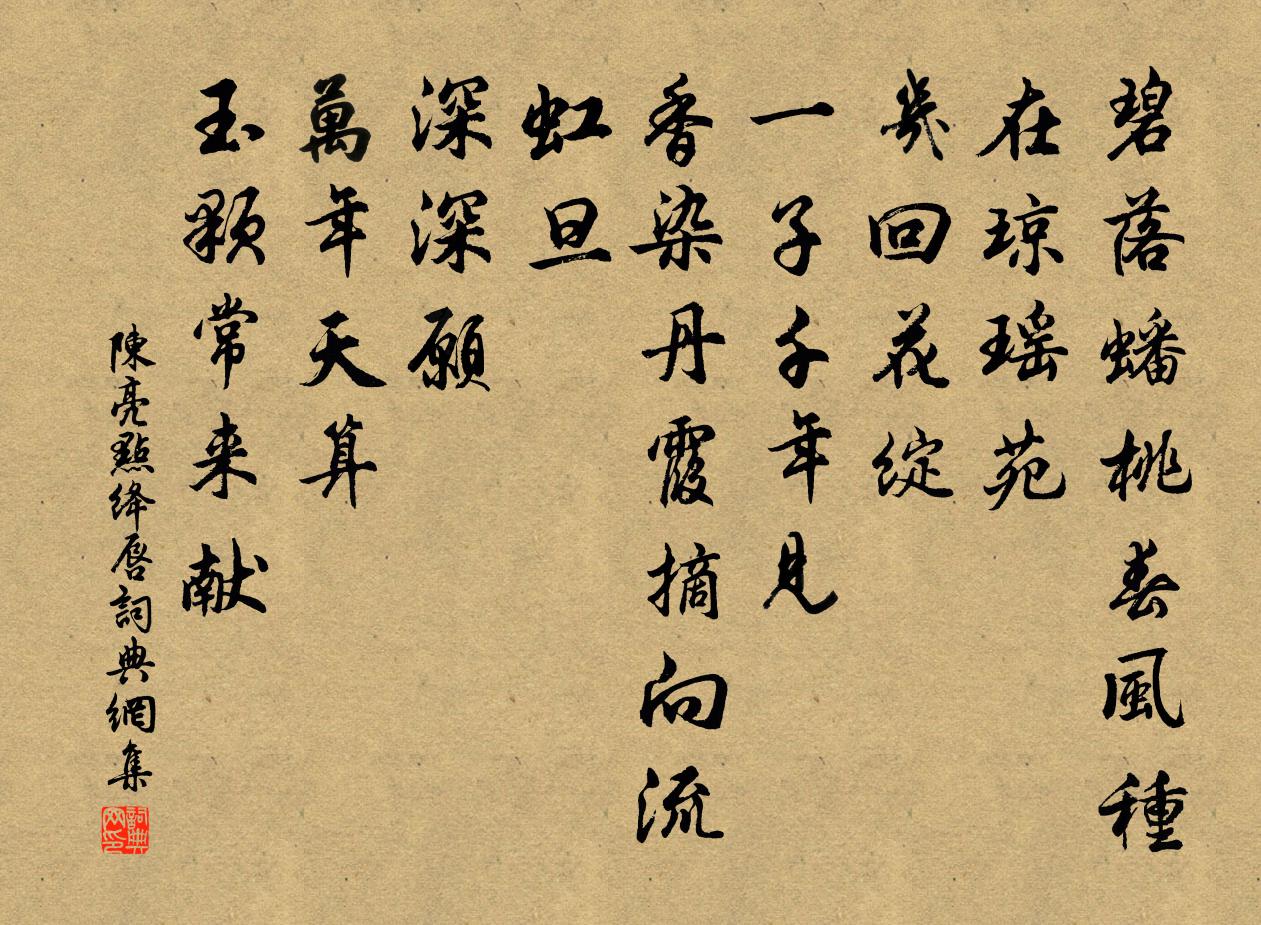 碧落蟠桃春風種
在琼瑶苑
幾回花綻
一子千年見
香染丹霞摘向流
虹旦
深深願
萬年天算
玉顆常来献
陳亮點絳唇詞典網集
詞典網印